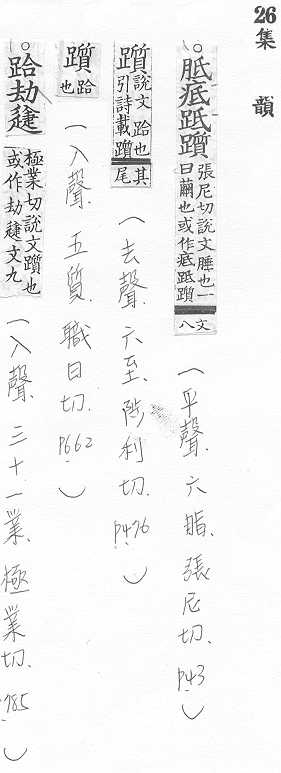 26集韻
○胝疷跮躓張尼切說文腄也一曰繭也或作疷跮躓文八
(平聲、六脂、張尼切、P43)
躓說文跲也引詩載躓其尾
(去聲、六至、陟利切、P476)
躓跲也
(入聲、五質、職日切、P662)
○跲劫𨄌極業切說文躓也或作劫𨄌文九
(入聲、三十一業、極業切、785)